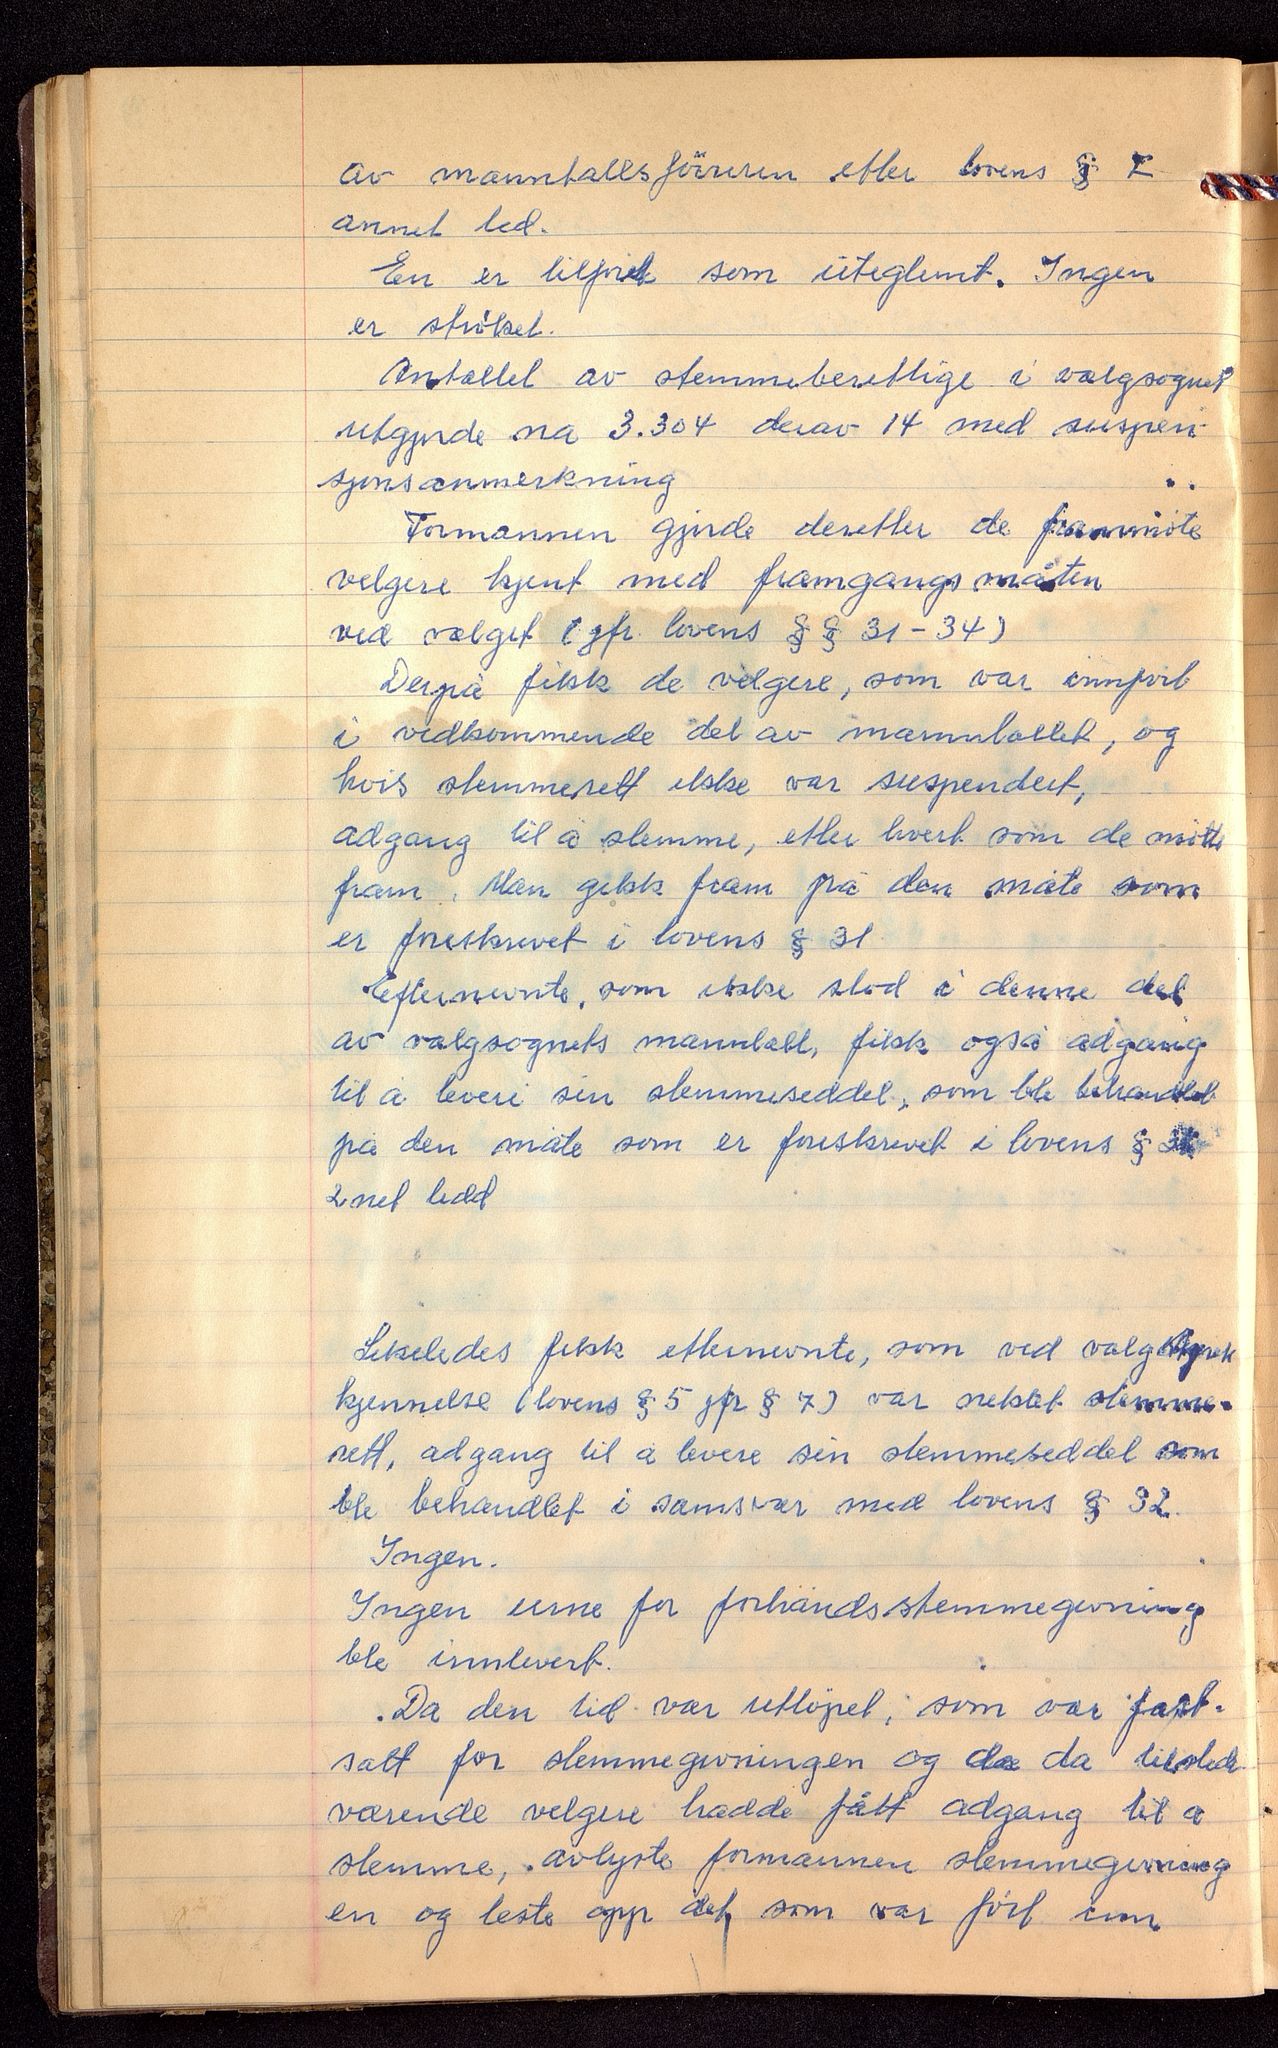 av manntallsføreren etter lovens § 7
annet led.
En er tilført som uteglemt. Ingen
er strøket.
Antallet av stemmeberettige i valgsognet
utgjorde na 3.304 derav 14 med suspen-
sjonsanmerkning
Formannen gjorde deretter de frammøte
velgere kjent med framgangsmåten
ved valget (jfr. lovens § § 31-34)
Derpå fikk de velgere, som var innført
i vedkommende del av manntallet, og
hvis stemmerett ikke var suspendert,
adgang til å stemme, etter hvert som de møtte
fram. Man gikk fram på den måte som
er foreskrevet i lovens § 31
Efternevnte, som ikke stod i denne del
av valgsognets manntall, fikk også adgang
til å levere sin stemmeseddel, som ble behandlet
på den måte som er foreskrevet i lovens §
2net ledd
Likeledes fikk etternevnte, som ved valgstyrets
kjennelse (lovens § 5 jfr § 7) var nektet stemme-
rett, adgang til å levere sin stemmeseddel som
ble behandlet i samsvar med lovens § 32.
Ingen.
Ingen urne for forhåndsstemmegivning
ble innlevert.
Da den tid var utløpet, som var fast-
satt for stemmegivningen og de da tilstede
værende velgere hadde fått adgang til a
stemme, avlyste formannen stemmegivning
en og leste opp det, som var ført inn